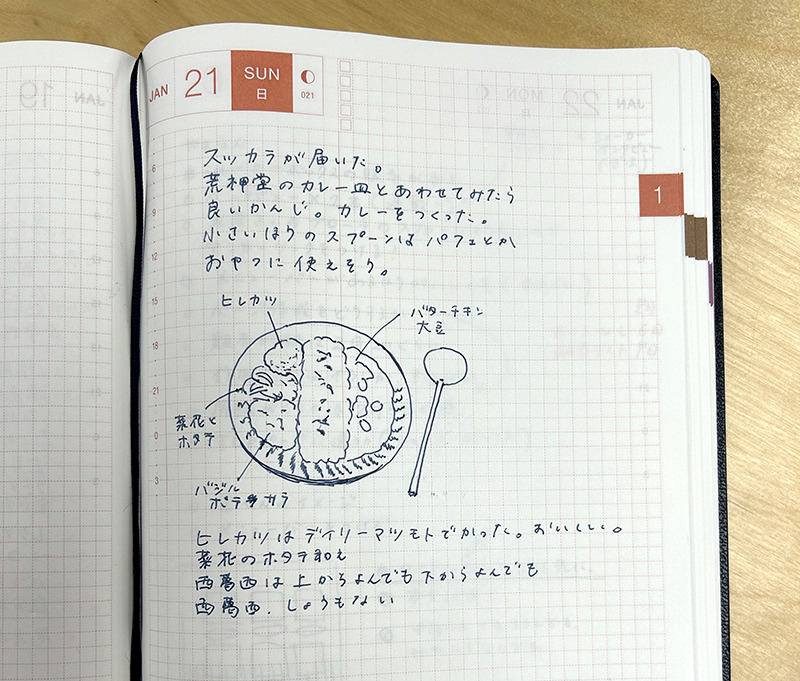 JAN 21 SUN
日 021
1
6
スッカラが届いた。
荒神堂のカレー皿とあわせてみたら
9
良いかんじ。カレーをつくった。
小さいほうのスプーンは パフェとか
12
おやつに使えそう。
15
ヒレカツ
バターチキン
大豆
21
菜花と
ホタテ
0
バジル
ポテサラ
3
ヒレカツはデイリーマツモトでかった。おいしい。
菜花のホタテ和え
西葛西は上からよんでも下からよんでも
西葛西.しょうもない
JAN 19
JAN 22 MON